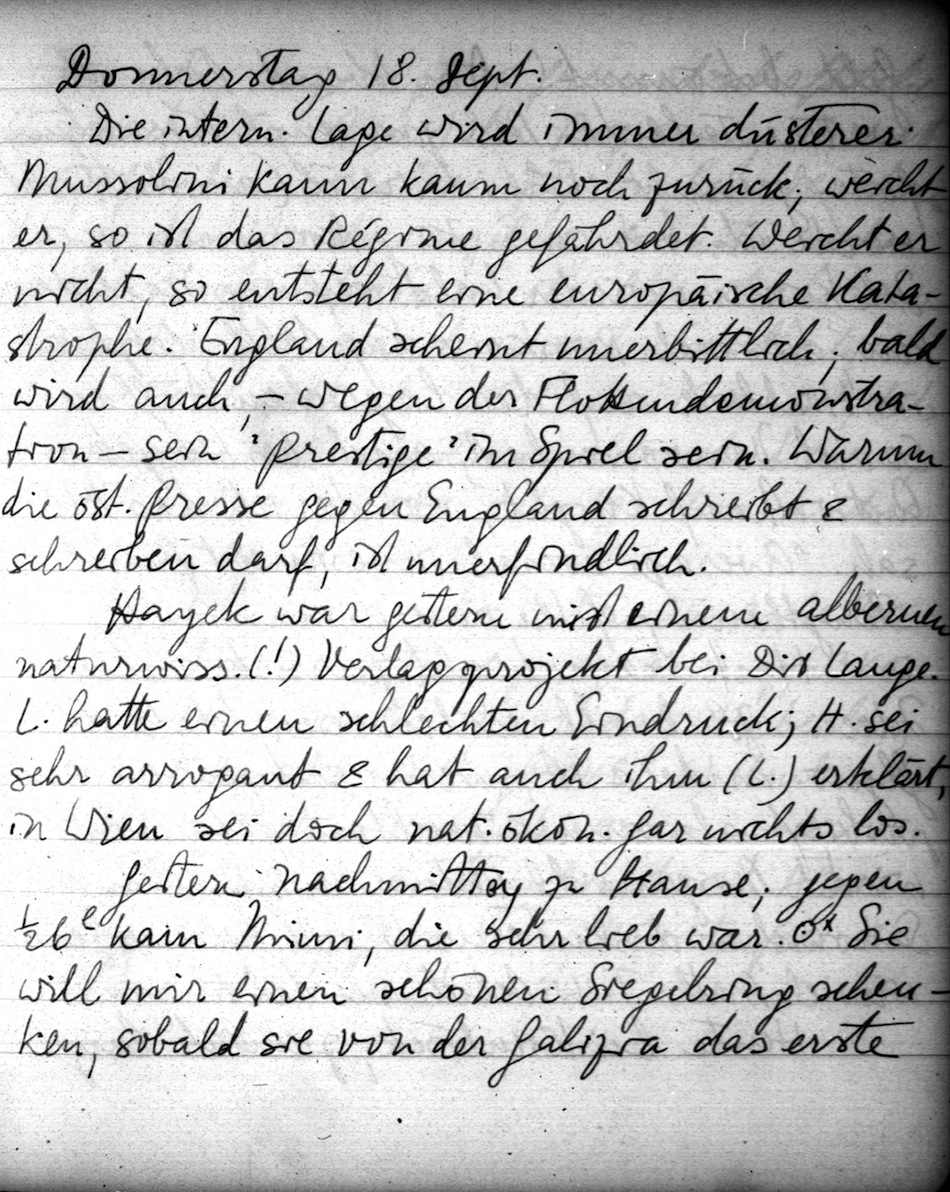 Donnerstag 18. Sept.
Die intern. Lage wird immer düsterer.
Mussolini kann kaum noch zurück; weicht
er, so ist das Régime gefährdet. Weicht er
nicht, so entsteht eine europäische Kata-
strophe. England scheint unerbittlich; bald
wird auch, – wegen der Flottendemonstra-
tion – sein 'prestige' im Spiel sein. Warum
die öst. Presse gegen England schreibt &
schreiben darf, ist unerfindlich.
Hayek war gestern mit einem albernen
naturwiss. (!) Verlagsprojekt bei Dir Lange.
L. hatte einen schlechten Eindruck; H. sei
sehr arrogant & hat auch ihm (L.) erklärt,
in Wien sei doch nat. ökon. gar nichts los.
Gestern Nachmittag zu Hause; gegen
½6 kam Mimi, die sehr lieb war. Sie
will mir einen schönen Siegelring schen-
ken, sobald sie von der das erste